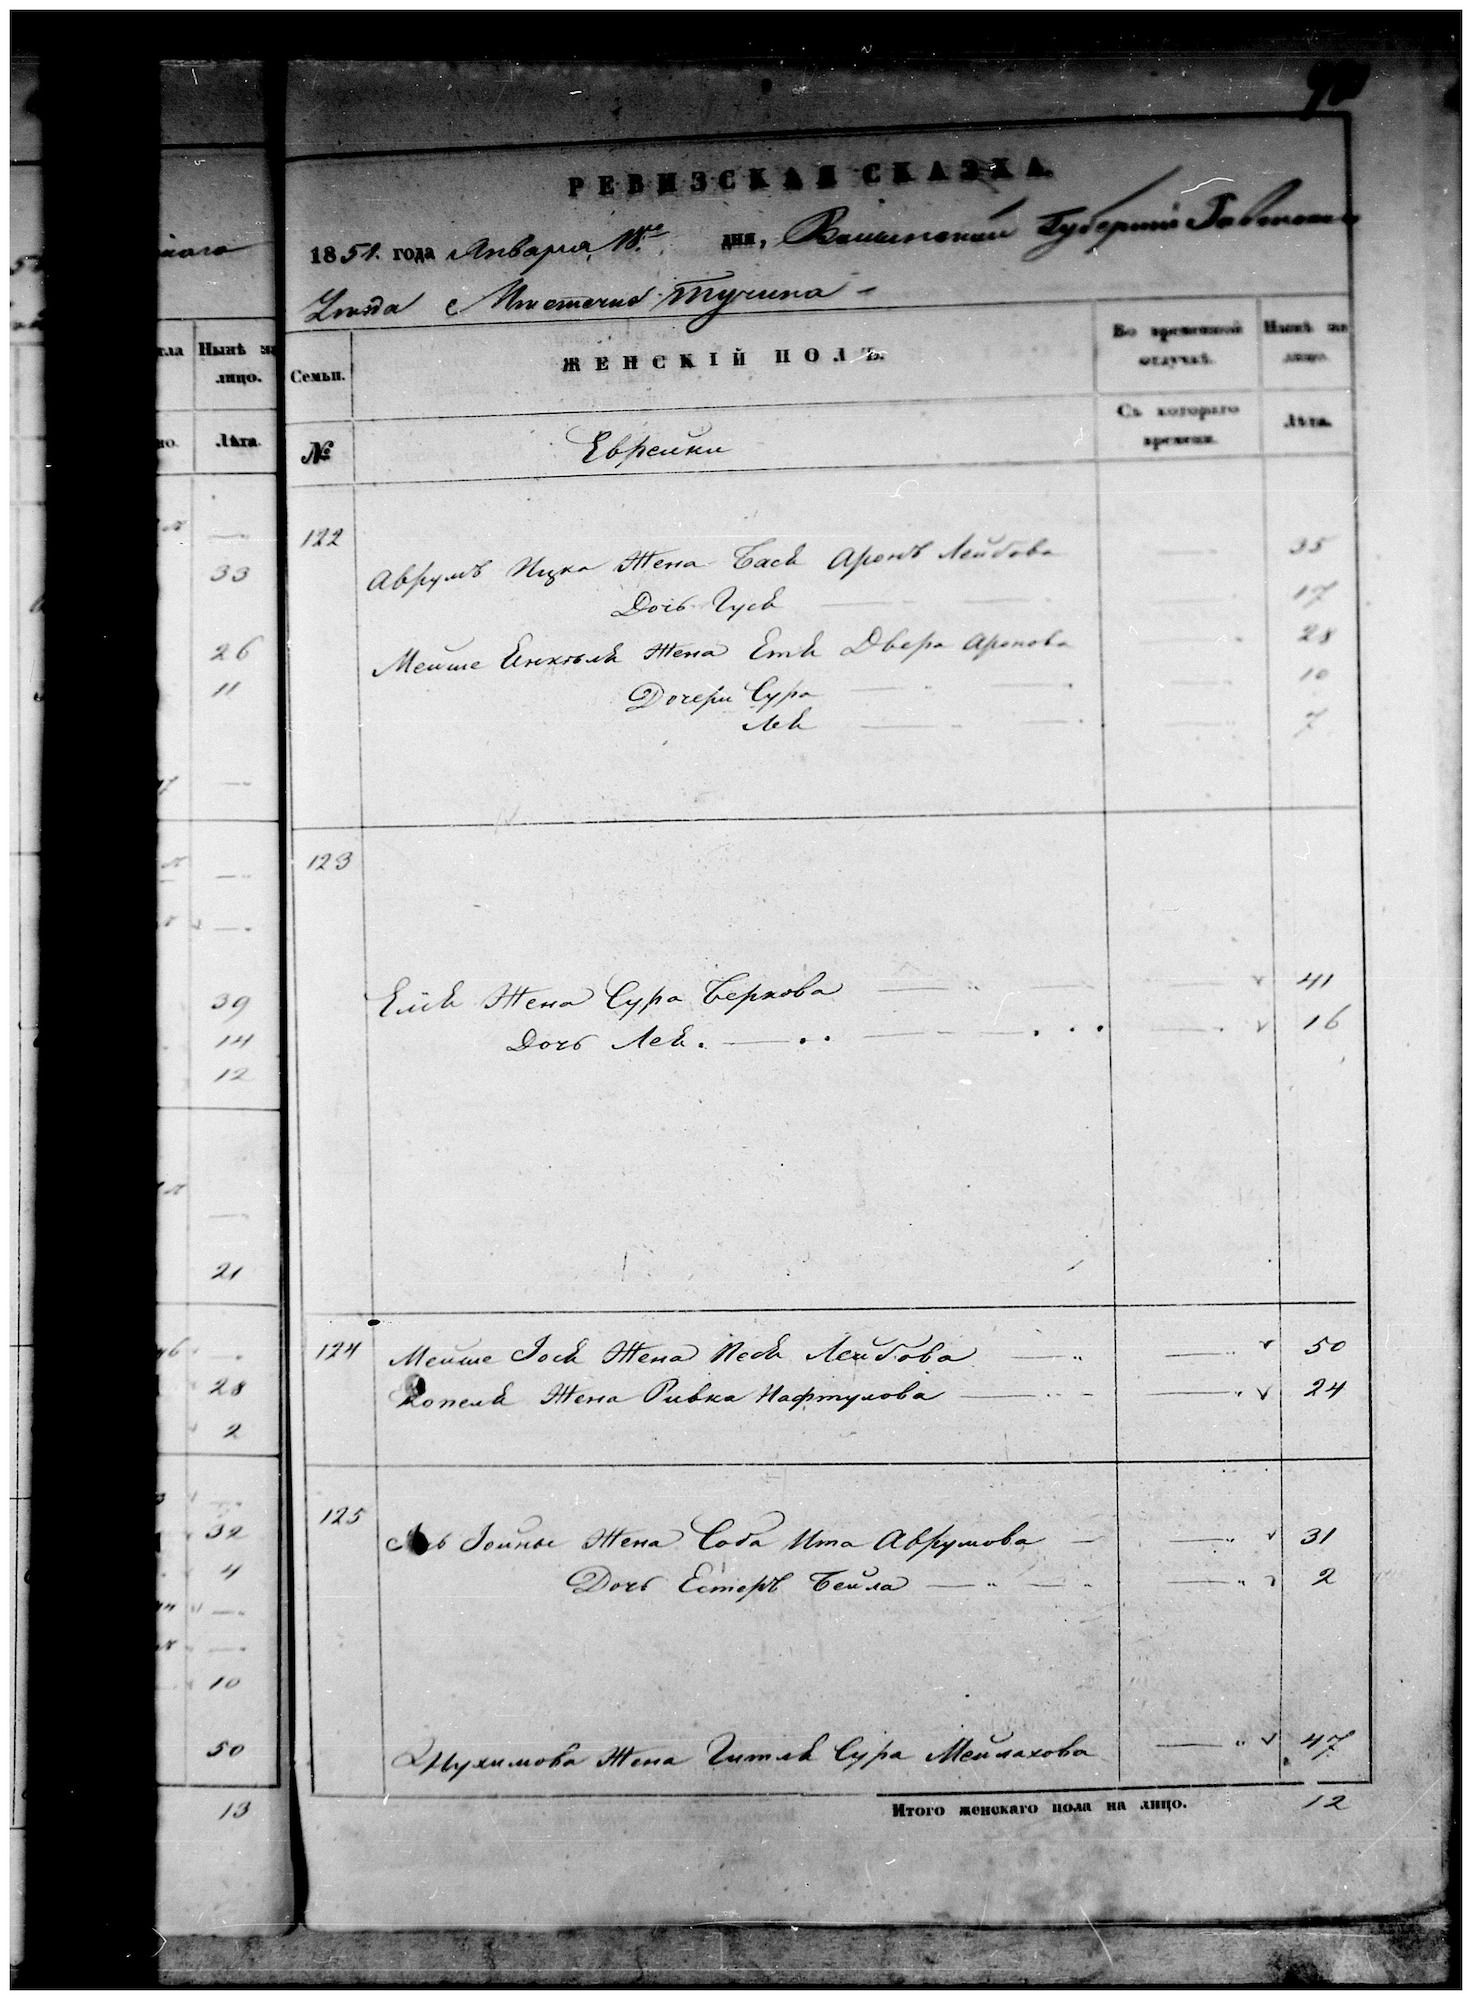 РЕВИЗСКАЯ СКАЗКА.
1851. года Января дня, Волынской Губернии
Уезда Местечка Тучина
Нынѣ на
лицо.
Лѣта.
—
33
26
11
—
—
—
39
14
12
—
21
—
28
2
—
32
4
—
—
10
50
13
Семьи.
ЖЕНСКІЙ ПОЛЪ.
Во временной
отлучкѣ.
Нынѣ на
лицо.
№
Еврейки
Съ котораго
времени.
Лѣта.
122
Аврумъ Ицка Жена Бася Аронъ Лейбова 35
Дочь Гуся 17
Мейше Жена Етя Двера Аронова 28
Дочери Сура 10
Лея 7
123
Жена Сура Беркова 41
Дочь Лея. 16
124 Мейше Iося Жена Песя Лейбова 50
Жена Ривка Нафтулова 24
125
Iойны Жена Соба Ита Аврумова 31
Дочь Естеръ Бейла 2
Нухимова Жена Гитля Сура Мейлахова 47
Итого женскаго пола на лицо. 12